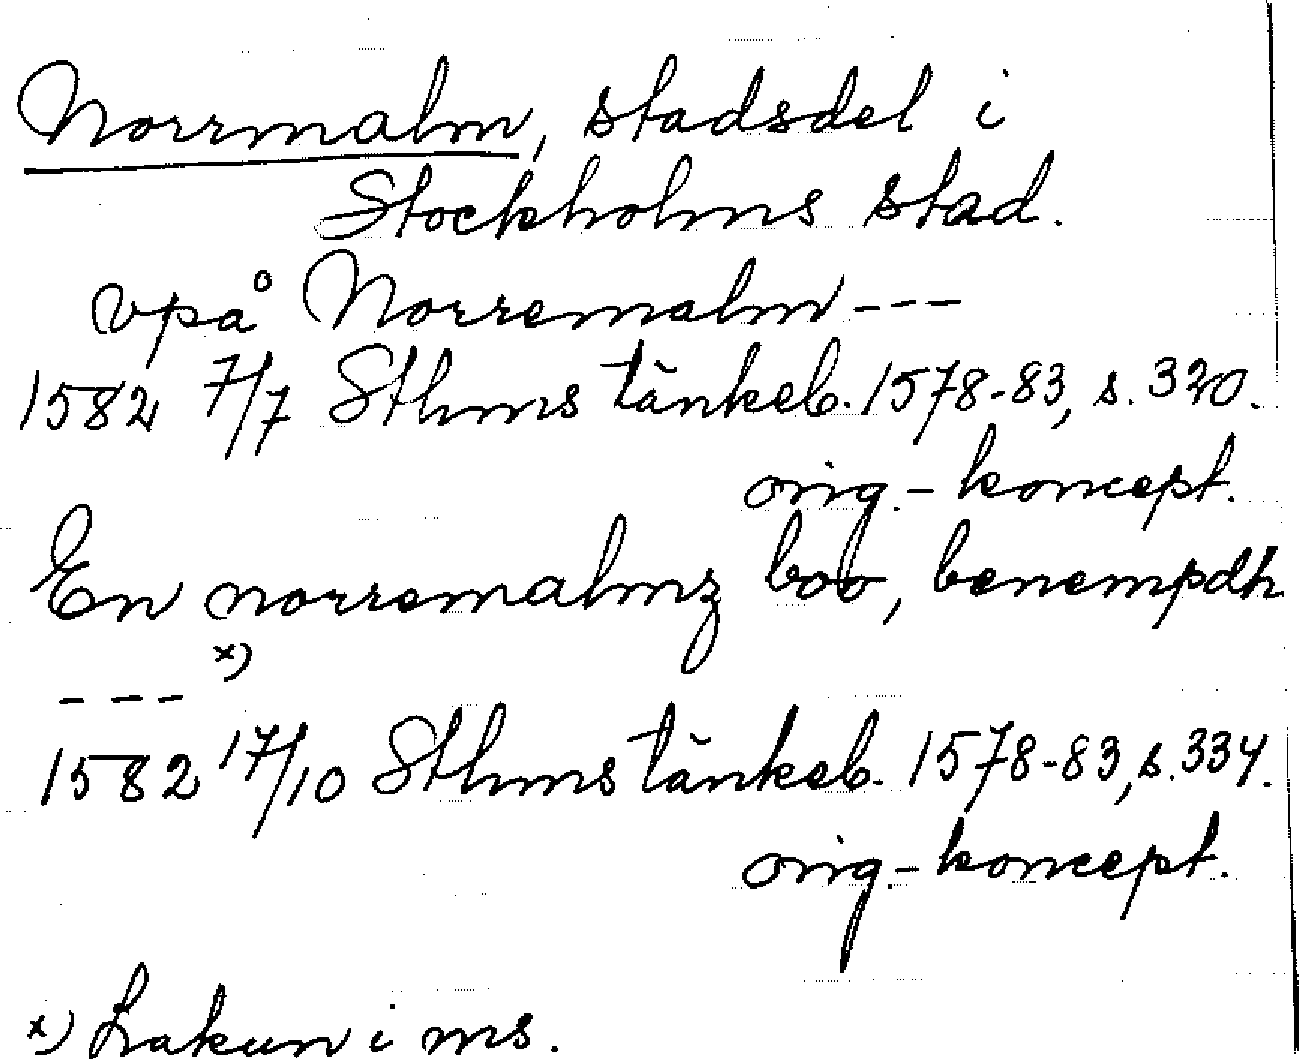 Norrmalm, stadsdel i
Stockholms stad.
vpå Norremalm ---
1582 7/7 Sthms tänkeb. 1578-83, s. 320.
orig.-koncept.
En norremalmz boo, benempdh
--- x)
1582 17/10 Sthms tänkeb. 1578-83, s. 334.
orig.-koncept.
x) Lakun i ms.